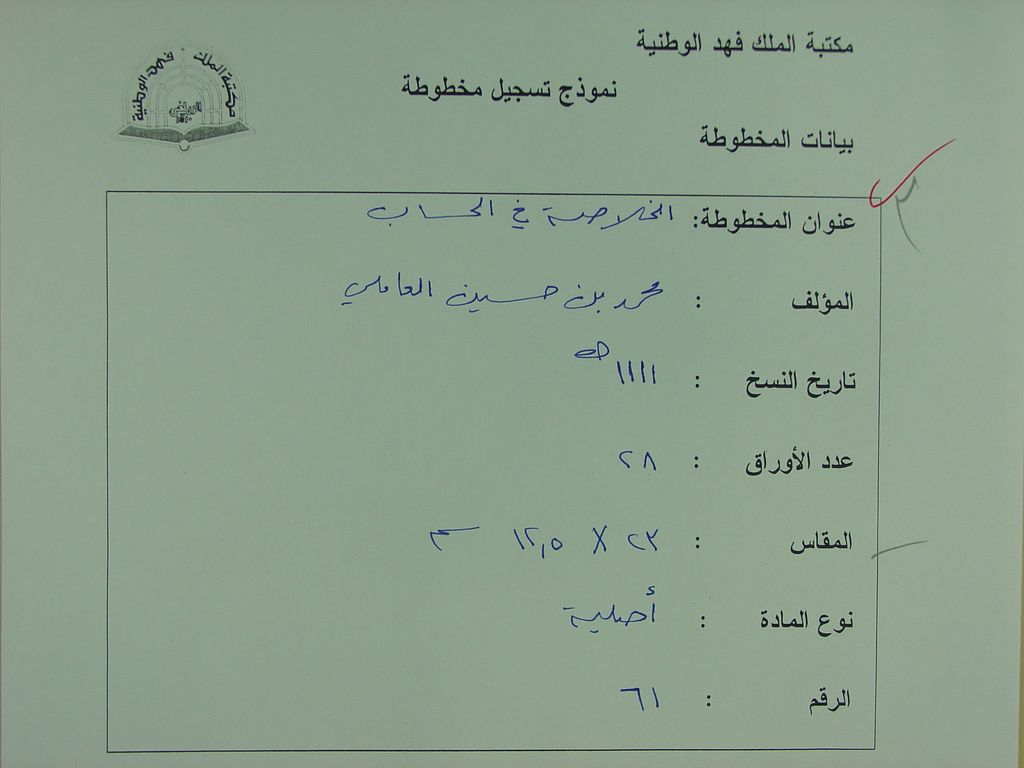 مكتبة الملك فهد الوطنية
مكتبة الملك فهد الوطنية
الرياض
نموذج تسجيل مخطوطة
بيانات المخطوطة
عنوان المخطوطة: الخلاصة في الحساب
المؤلف : محمد بن حسين العاملي
تاريخ النسخ : ١١١١ هـ
عدد الأوراق : ٢٨
المقاس : ٢٣ X ١٢,٥ سم
نوع المادة : أصلية
الرقم : ٦١